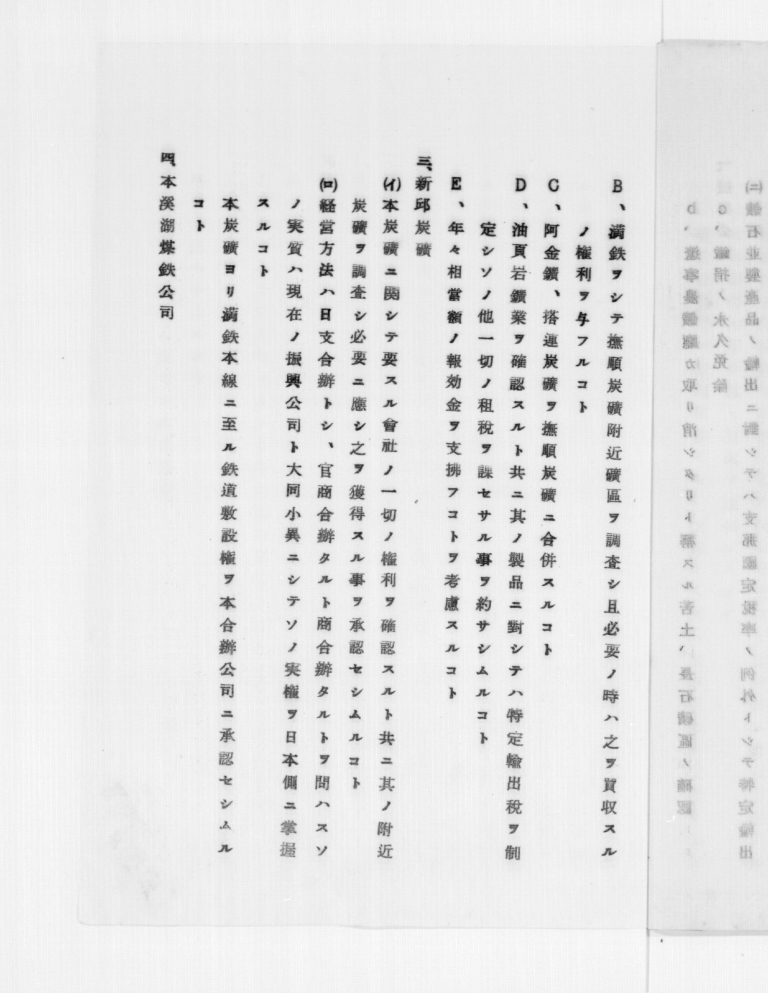 B、満鉄ヲシテ撫順炭礦附近礦區ヲ調査シ且必要ノ時ハ之ヲ買収スル
ノ権利ヲ与フルコト
C、阿金鑛、搭連炭礦ヲ撫順炭礦ニ合併スルコト
D、油頁岩鑛業ヲ確認スルト共ニ其ノ製品ニ對シテハ特定輸出税ヲ制
定シソノ他一切ノ租税ヲ課セサル事ヲ約サシムルコト
E、年々相當額ノ報効金ヲ支拂フコトヲ考慮スルコト
三、新邱炭礦
(イ)本炭礦ニ関シテ要スル會社ノ一切ノ権利ヲ確認スルト共ニ其ノ附近
炭礦ヲ調査シ必要ニ應シ之ヲ獲得スル事ヲ承認セシムルコト
(ロ)経営方法ハ日支合辦トシ、官商合辦タルト商合辦タルトヲ問ハスソ
ノ実質ハ現在ノ振興公司ト大同小異ニシテソノ実権ヲ日本側ニ掌握
スルコト
本炭礦ヨリ満鉄本線ニ至ル鉄道敷設権ヲ本合辦公司ニ承認セシムル
コト
四、本溪湖煤鉄公司